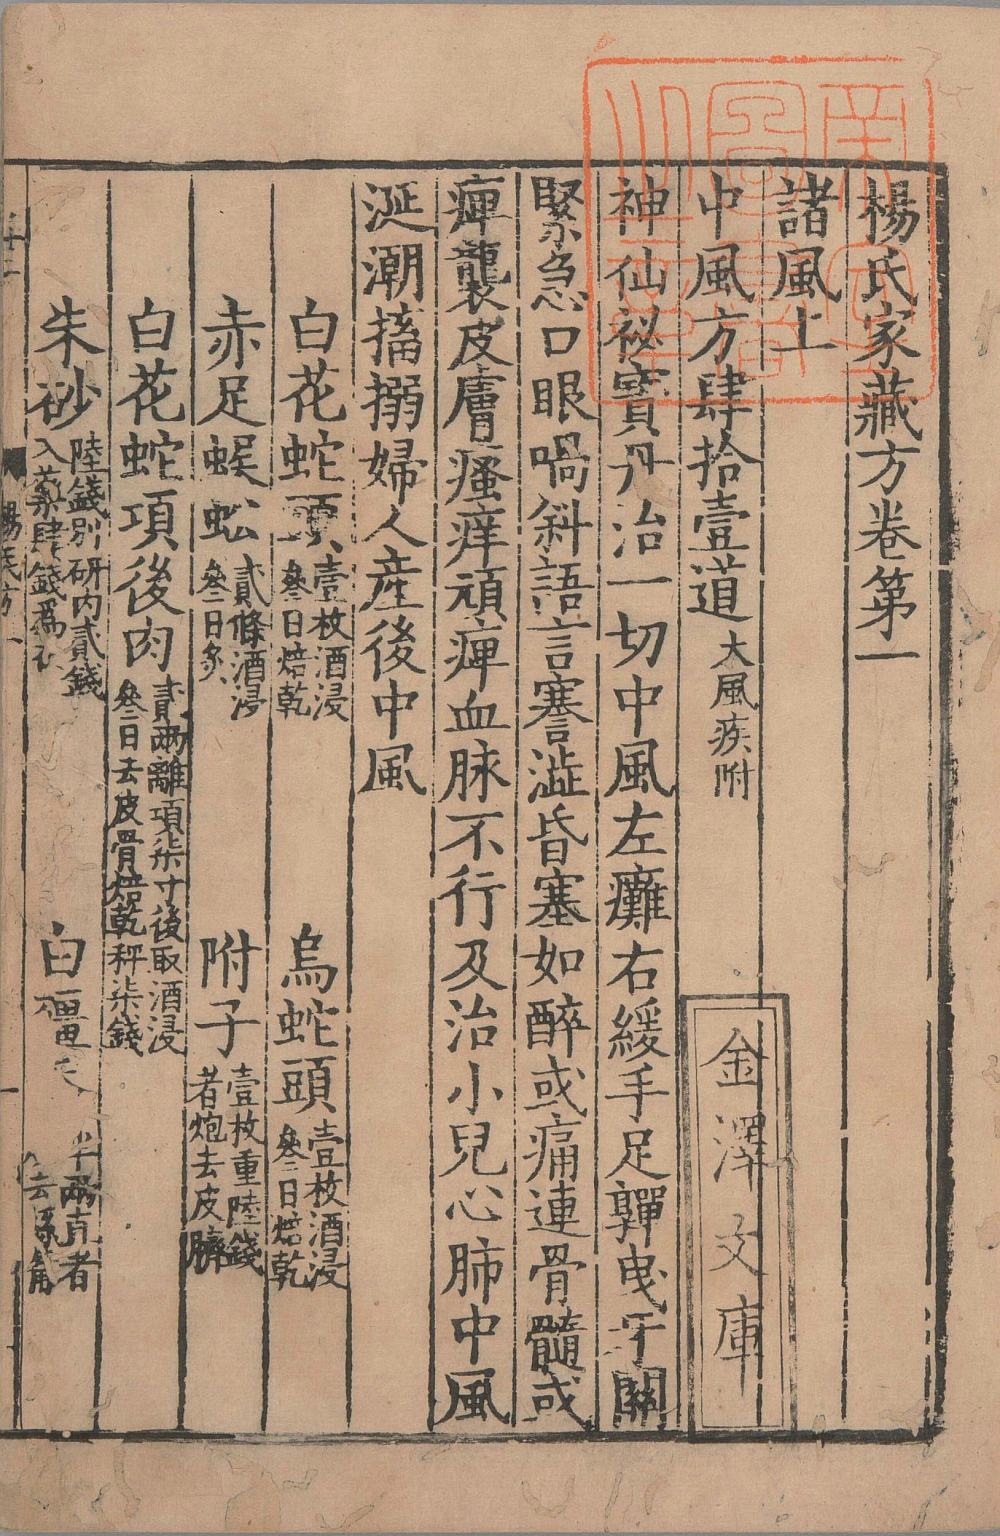 楊氏家藏方卷第一
諸風上
中風方肆拾壹道 大風疾附
神仙祕寳丹治一切中風左癱右緩手足嚲曳牙關
緊急口眼喎斜語言謇澁昏塞如醉或痛連骨髓或
痺襲皮膚瘙痒頑痺血脉不行及治小兒心肺中風
涎潮搐搦婦人産後中風
白花蛇頭 壹枚酒浸叄日焙乾 烏蛇頭 壹枚酒浸叄日焙乾
赤足蜈蚣 貳條酒浸叄日炙 附子 壹枚重陸錢者炮去皮臍
白花蛇項後肉 貳兩離項柒寸後取酒浸叄日去皮骨焙乾秤柒錢
朱砂 陸錢別研内貳錢入藥肆錢爲衣 白僵 半兩直者去絲
金澤文庫